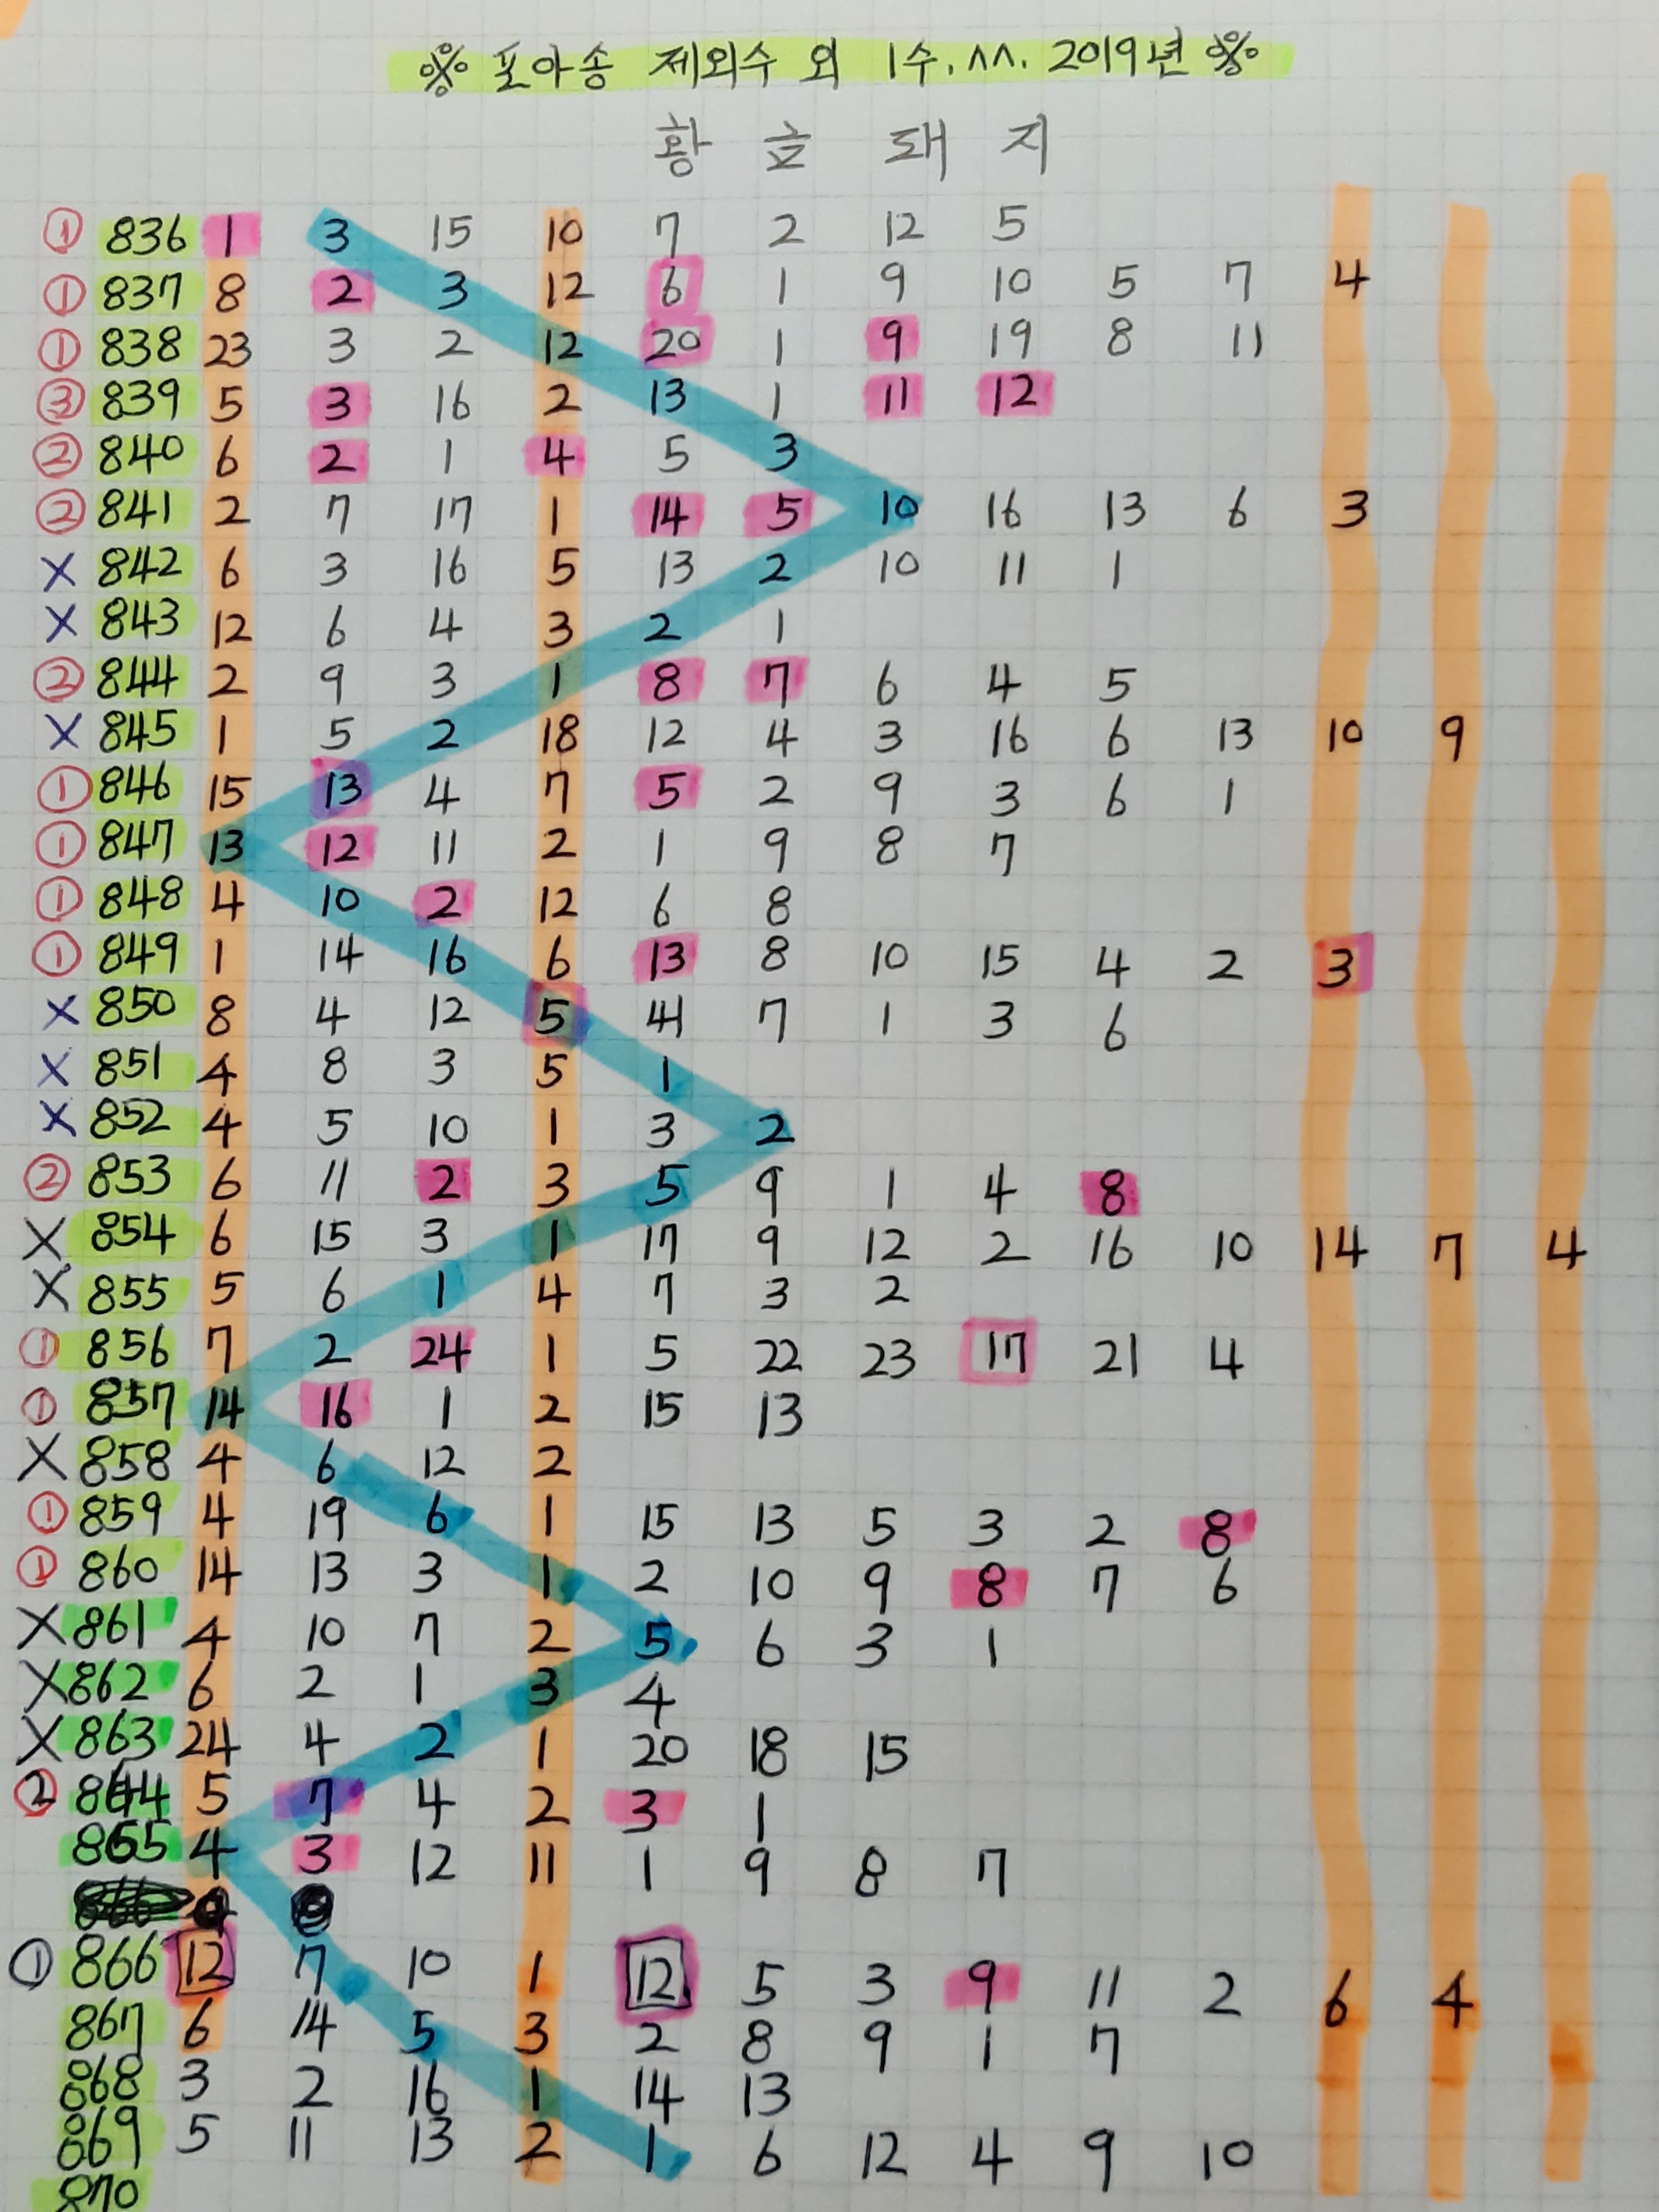 ※ 포아송 제외수 외 1수. ^^. 2019년 ※
황 금 돼 지
① 836 1 3 15 10 7 2 12 5
① 837 8 2 3 12 6 1 9 10 5 7 4
① 838 23 3 2 12 20 1 9 19 8 11
③ 839 5 3 16 2 13 1 11 12
② 840 6 2 1 4 5 3
② 841 2 7 17 1 14 5 10 16 13 6 3
X 842 6 3 16 5 13 2 10 11 1
X 843 12 6 4 3 2 1
② 844 2 9 3 1 8 7 6 4 5
X 845 1 5 2 18 12 4 3 16 6 13 10 9
① 846 15 13 4 7 5 2 9 3 6 1
① 847 13 12 11 2 1 9 8 7
① 848 4 10 2 12 6 8
① 849 1 14 16 6 13 8 10 15 4 2 3
X 850 8 4 12 5 41 7 1 3 6
X 851 4 8 3 5 1
X 852 4 5 10 1 3 2
② 853 6 11 2 3 5 9 1 4 8
X 854 6 15 3 1 17 9 12 2 16 10 14 7 4
X 855 5 6 1 4 7 3 2
① 856 7 2 24 1 5 22 23 17 21 4
① 857 14 16 1 2 15 13
X 858 4 6 12 2
① 859 4 19 6 1 15 13 5 3 2 8
① 860 14 13 3 1 2 10 9 8 7 6
X 861 4 10 7 2 5 6 3 1
X 862 6 2 1 3 4
X 863 24 4 2 1 20 18 15
② 864 5 7 4 2 3 1
865 4 3 12 11 1 9 8 7
① 866 12 7 10 1 12 5 3 9 11 2 6 4
867 6 14 5 3 2 8 9 1 7
868 3 2 16 1 14 13
869 5 11 13 2 1 6 12 4 9 10
870